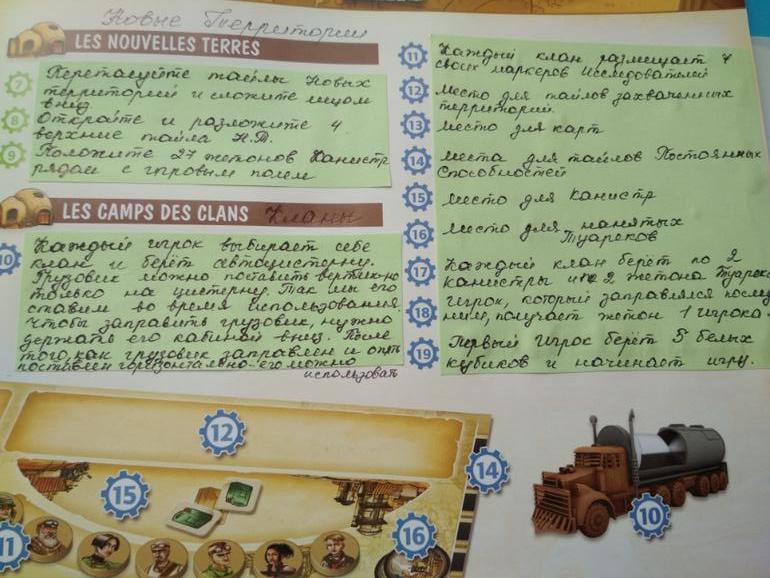 Новые Территории
LES NOUVELLES TERRES
7 Перетасуйте тайлы Новых
территорий и сложите лицом
вниз.
8 Откройте и разложите 4
верхние тайла Н.Т.
9 Положите 27 жетонов Канистр
рядом с игровым полем
LES CAMPS DES CLANS Кланы
10 Каждый игрок выбирает себе
клан и берёт автоцистерну.
Грузовик можно поставить вертик-но
только на цистерну. Так мы его
ставим во время использования.
Чтобы заправить грузовик, нужно
держать его кабиной вниз. После
того, как грузовик заправлен и опять
поставлен горизонтально - его можно
использовать
11 Каждый клан размещает 7
своих маркеров Исследователей
12 Место для тайлов захваченных
территорий.
13 Место для карт
14 Места для тайлов Постоянных
Способностей
15 Место для Канистр
16 Место для нанятых
Туарегов
17 Каждый клан берёт по 2
канистры и 2 жетона Туарегов
18 Игрок, который заправлялся
получает жетон 1 игрока.
19 Первый Игрок берёт 5 белых
кубиков и начинает игру.
12
15
14
11
16
10